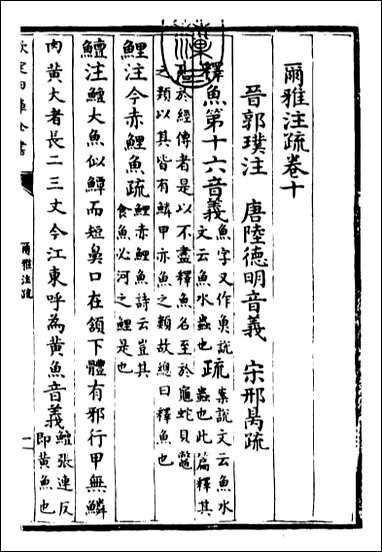 爾雅注疏卷十
晉郭璞注　唐陸德明音義　宋邢昺疏
釋魚第十六音義魚字又作𩵋說文云魚水蟲也疏案說文云魚水蟲也此篇釋其
見於經傳者是以不盡釋魚名至於龜蛇貝鼈
之類以其皆有鱗甲亦魚之類故總曰釋魚也
鯉注今赤鯉魚疏鯉赤鯉魚詩云豈其食魚必河之鯉是也
鱣注鱣大魚似鱏而短鼻口在頷下體有邪行甲無鱗
肉黃大者長二三丈今江東呼為黃魚音義鱣張連反即黃魚也
爾雅注疏